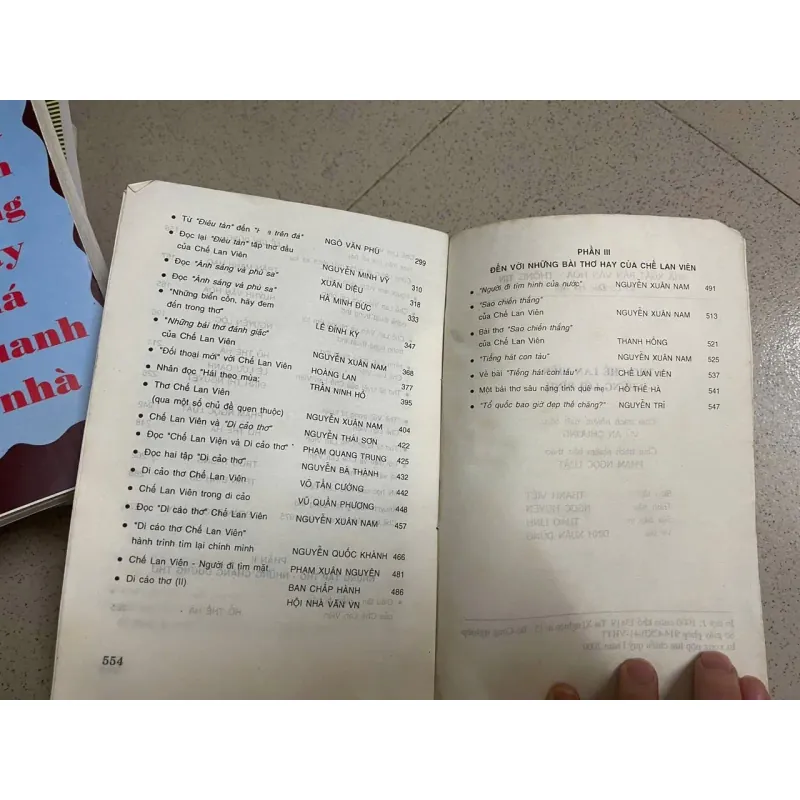 uanh
nhà
• Từ "Điêu tàn" đến trên đá" NGÔ VĂN PHÚ 299
• Đọc lại "Điêu tàn" tập thơ đầu
của Chế Lan Viên NGUYỄN MINH VỸ 310
• Đọc "Ánh sáng và phù sa" XUÂN DIỆU 318
• Đọc "Ánh sáng và phù sa" HÀ MINH ĐỨC 333
• "Những biển cồn, hãy đem
đến trong thơ" LÊ ĐÌNH KỴ 347
• "Những bài thơ đánh giặc"
của Chế Lan Viên NGUYỄN XUÂN NAM 368
• "Đối thoại mới" với Chế Lan Viên HOÀNG LAN 377
• Nhân đọc "Hái theo mùa: TRẦN NINH HỒ 395
• Thơ Chế Lan Viên
(qua một số chủ đề quen thuộc) NGUYỄN XUÂN NAM 404
• Chế Lan Viên và "Di cảo thơ" NGUYỄN THÁI SƠN 422
• Đọc "Chế Lan Viên và Di cảo thơ" PHẠM QUANG TRUNG 425
• Đọc hai tập "Di cảo thơ" NGUYỄN BÁ THÀNH 432
• Di cảo thơ Chế Lan Viên VÕ TẤN CƯỜNG 442
• Chế Lan Viên trong di cảo VŨ QUẦN PHƯƠNG 448
• Đọc "Di cảo thơ" Chế Lan Viên NGUYỄN XUÂN NAM 457
• "Di cảo thơ Chế Lan Viên"
hành trình tìm lại chính mình NGUYỄN QUỐC KHÁNH 466
• Chế Lan Viên - Người đi tìm mặt PHẠM XUÂN NGUYÊN 481
• Di cảo thơ (II) BAN CHẤP HÀNH 486
HỘI NHÀ VĂN VN
554
PHẦN III
ĐẾN VỚI NHỮNG BÀI THƠ HAY CỦA CHẾ LAN VIÊN
• "Người đi tìm hình của nước" NGUYỄN XUÂN NAM 491
• "Sao chiến thắng"
của Chế Lan Viên NGUYỄN XUÂN NAM 513
• Bài thơ "Sao chiến thắng"
của Chế Lan Viên THANH HỒNG 521
• "Tiếng hát con tàu" NGUYỄN XUÂN NAM 525
• Về bài "Tiếng hát con tàu" CHẾ LAN VIÊN 537
• Một bài thơ sâu nặng tình quê mẹ HỒ THẾ HÀ 541
• "Tổ quốc bao giờ đẹp thế chăng?" NGUYỄN TRÍ 547